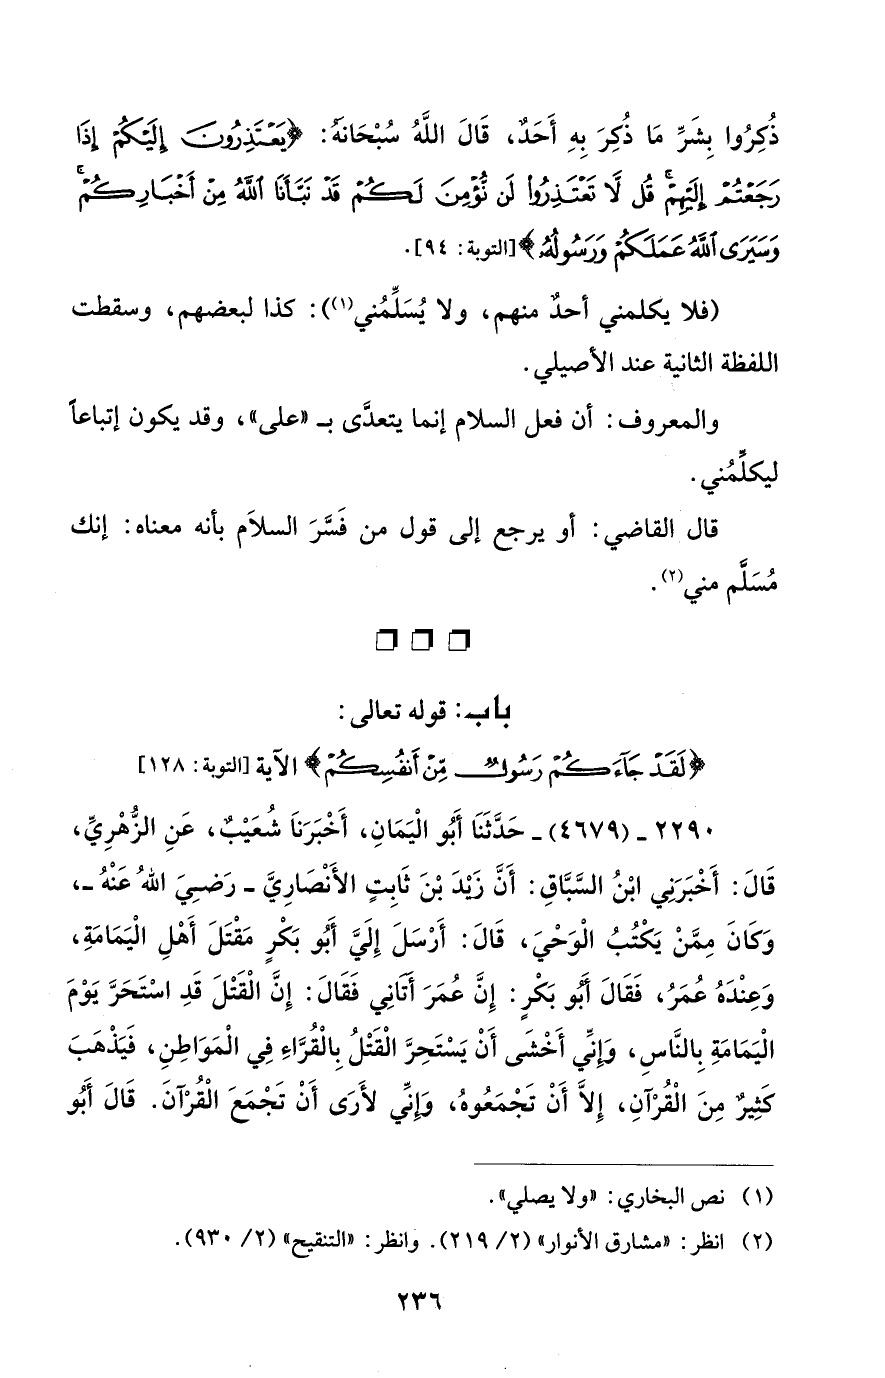 ذُكِرُوا بِشَرِّ مَا ذُكِرَ بِهِ أَحَدٌ، قَالَ اللَّهُ سُبْحَانَهُ: ﴿يَعْتَذِرُونَ إِلَيْكُمْ إِذَا
رَجَعْتُمْ إِلَيْهِمْ ۚ قُل لَّا تَعْتَذِرُوا لَن نُّؤْمِنَ لَكُمْ قَدْ نَبَّأَنَا اللَّهُ مِنْ أَخْبَارِكُمْ ۚ
وَسَيَرَى اللَّهُ عَمَلَكُمْ وَرَسُولُهُ﴾ [التوبة: ٩٤].
(فلا يكلمني أحدٌ منهم، ولا يُسَلِّمُني(١)): كذا لبعضهم، وسقطت
اللفظة الثانية عند الأصيلي.
والمعروف: أن فعل السلام إنما يتعدَّى بـ «على»، وقد يكون إتباعاً
ليكلِّمُني.
قال القاضي: أو يرجع إلى قول من فَسَّرَ السلاَم بأنه معناه: إنك
مُسَلَّم مني(٢).
❐ ❐ ❐
باب: قوله تعالى:
﴿لَقَدْ جَاءَكُمْ رَسُولٌ مِّنْ أَنفُسِكُمْ﴾ الآية [التوبة: ١٢٨]
٢٢٩٠ ـ (٤٦٧٩) ـ حَدَّثَنَا أَبُو الْيَمَانِ، أَخْبَرَنَا شُعَيْبٌ، عَنِ الزُّهْرِيِّ،
قَالَ: أَخْبَرَنِي ابْنُ السَّبَّاقِ: أَنَّ زَيْدَ بْنَ ثَابِتٍ الأَنْصَارِيَّ ـ رَضِيَ اللهُ عَنْهُ ـ،
وَكَانَ مِمَّنْ يَكْتُبُ الْوَحْيَ، قَالَ: أَرْسَلَ إِلَيَّ أَبُو بَكْرٍ مَقْتَلَ أَهْلِ الْيَمَامَةِ،
وَعِنْدَهُ عُمَرُ، فَقَالَ أَبُو بَكْرٍ: إِنَّ عُمَرَ أَتَانِي فَقَالَ: إِنَّ الْقَتْلَ قَدِ اسْتَحَرَّ يَوْمَ
الْيَمَامَةِ بِالنَّاسِ، وَإِنِّي أَخْشَى أَنْ يَسْتَحِرَّ الْقَتْلُ بِالْقُرَّاءِ فِي الْمَوَاطِنِ، فَيَذْهَبَ
كَثِيرٌ مِنَ الْقُرْآنِ، إِلاَّ أَنْ تَجْمَعُوهُ، وَإِنِّي لأَرَى أَنْ تَجْمَعَ الْقُرْآنَ. قَالَ أَبُو
(١) نص البخاري: «ولا يصلي».
(٢) انظر: «مشارق الأنوار» (٢/ ٢١٩). وانظر: «التنقيح» (٢/ ٩٣٠).
٢٣٦